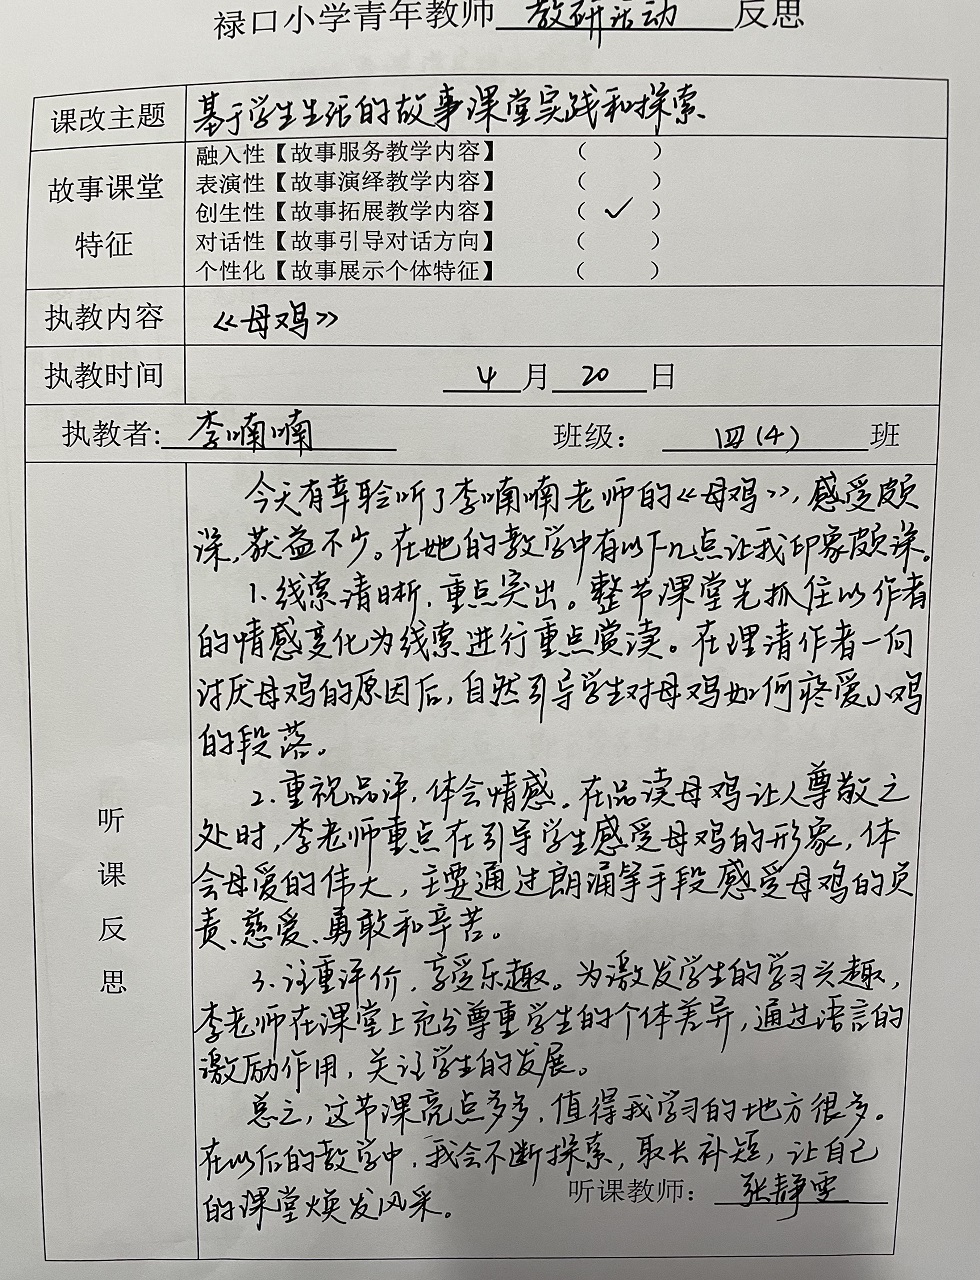 禄口小学青年教师 教研活动 反思
课改主题 基于学生生活的故事课堂实践和探索
故事课堂特征
融入性【故事服务教学内容】 （ ）
表演性【故事演绎教学内容】 （ ）
创生性【故事拓展教学内容】 （ ✓ ）
对话性【故事引导对话方向】 （ ）
个性化【故事展示个体特征】 （ ）
执教内容 《母鸡》
执教时间 4 月 20 日
执教者: 李喃喃 班级: 四(4) 班
听课反思
今天有幸聆听了李喃喃老师的《母鸡》，感受颇
深，获益不少。在她的教学中有以下几点让我印象颇深。
1.线索清晰，重点突出。整节课堂先抓住以作者
的情感变化为线索进行重点赏读。在理清作者一向
讨厌母鸡的原因后，自然引导学生对母鸡如何疼爱小鸡
的段落。
2.重视品评，体会情感。在品读母鸡让人尊敬之
处时，李老师重点在引导学生感受母鸡的形象，体
会母爱的伟大，主要通过朗诵等手段感受母鸡的负
责、慈爱、勇敢和辛苦。
3.注重评价，享受乐趣。为激发学生的学习兴趣，
李老师在课堂上充分尊重学生的个体差异，通过语言的
激励作用，关注学生的发展。
总之，这节课亮点多多，值得我学习的地方很多。
在以后的教学中，我会不断探索，取长补短，让自己
的课堂焕发风采。
听课教师: 张静雯